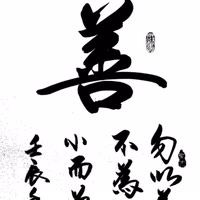 善
勿以
不為
小而
壬辰